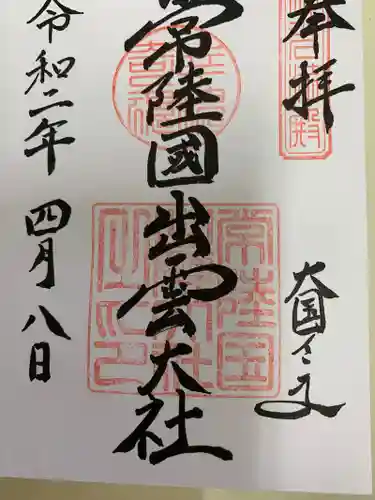 奉拝
大国さま
常陸國出雲大社
令和二年四月八日
常陸国